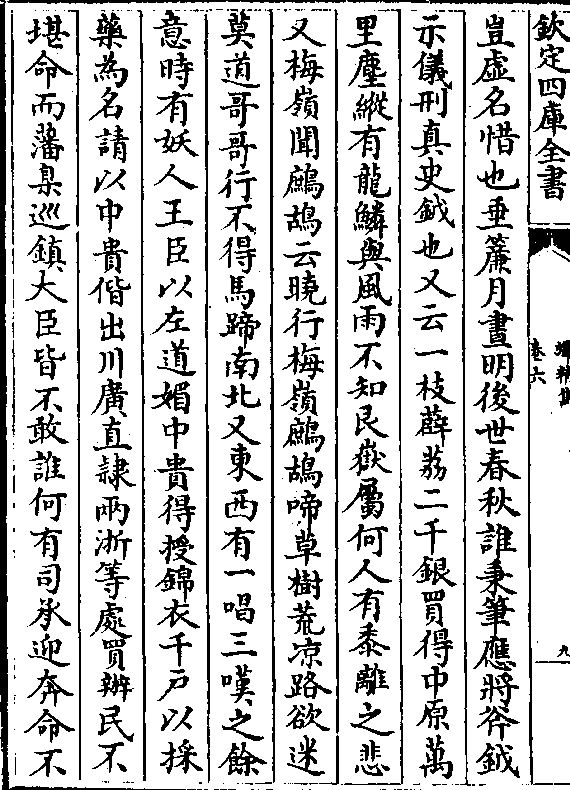 欽定四庫全書
卷六
九
豈虚名惜也垂簾月晝明後世春秋誰秉筆應將斧鉞
示儀刑真史鉞也又云一枝薜荔二千銀買得中原萬
里塵縱有龍鱗與風雨不知艮嶽屬何人有黍離之悲
又梅嶺聞鷓鴣云曉行梅嶺鷓鴣啼草樹荒凉路欲迷
莫道哥哥行不得馬蹄南北又東西有一唱三嘆之餘
意時有妖人王臣以左道媚中貴得授錦衣千戸以採
藥為名請以中貴偕出川廣直隷兩浙等處買辦民不
堪命而藩臬巡鎮大臣皆不敢誰何有司承迎奔命不